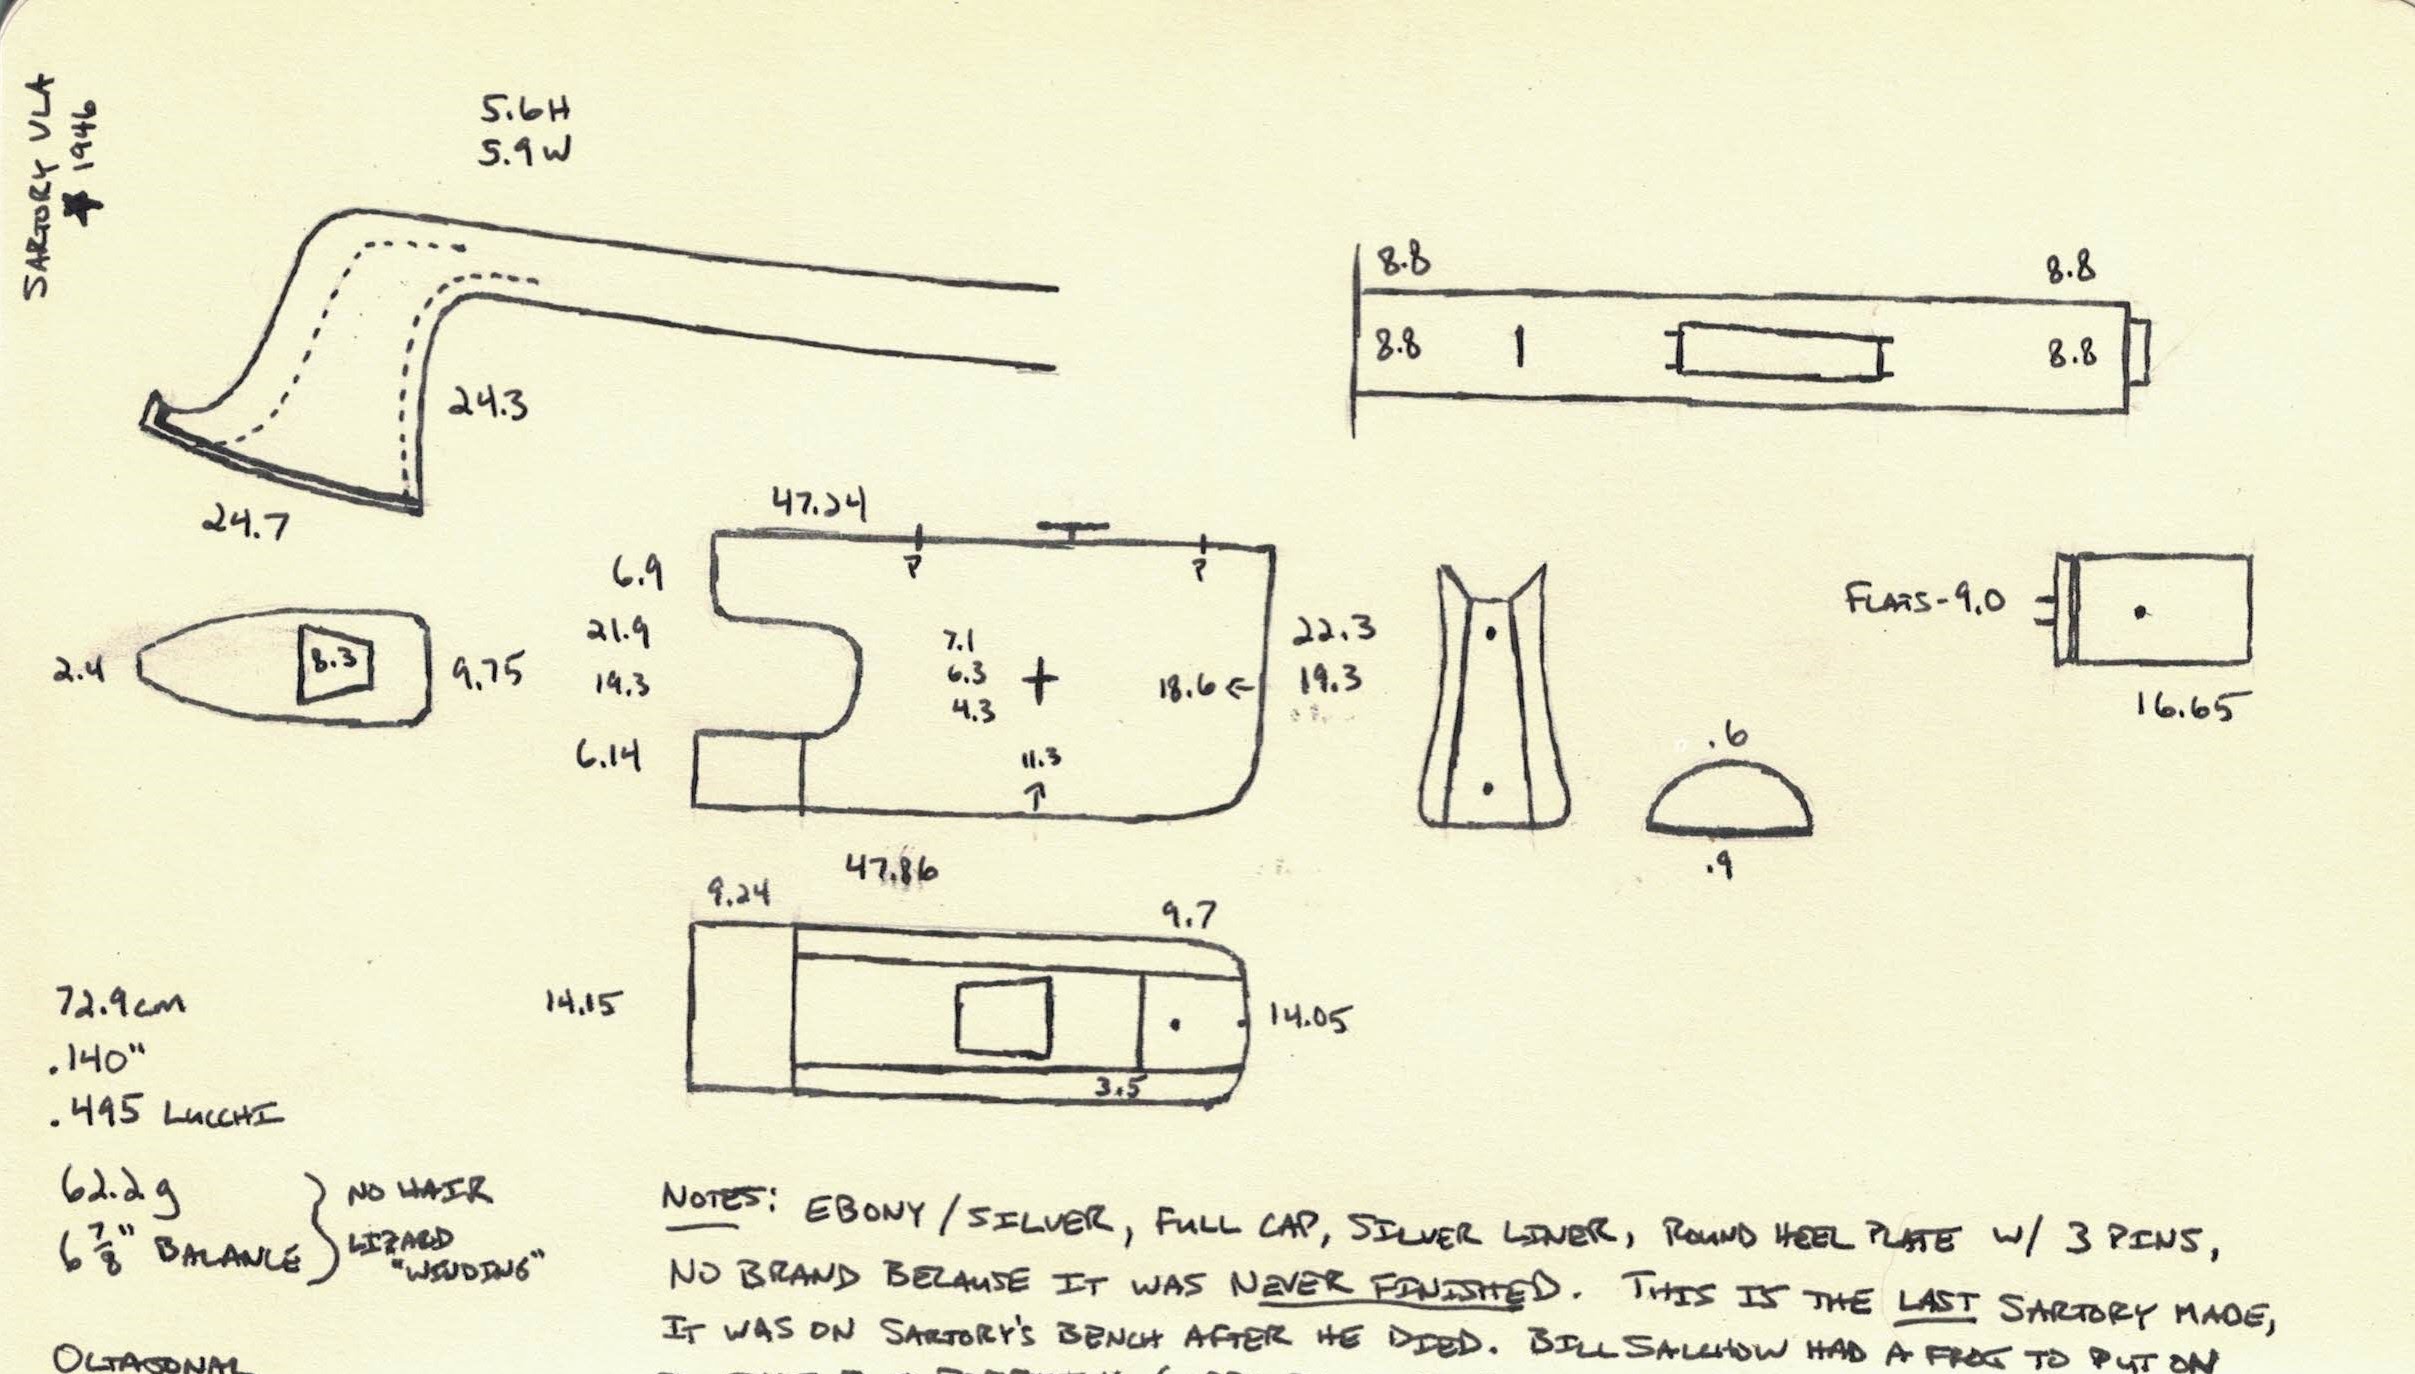 SARTORY VLA
1946
5.6H
5.9W
24.3
24.7
8.8
8.8
8.8
8.8
47.24
P
P
6.9
21.9
19.3
6.14
7.1
6.3
4.3
18.6
11.3
22.3
19.3
2.4
8.3
9.75
FLATS-9.0
16.65
.6
.9
47.86
9.24
9.7
14.15
14.05
3.5
72.9cm
.140"
.495 LUCCHI
62.2g
6 7/8" BALANCE
NO HAIR
LIZARD
"WINDING"
OCTAGONAL
NOTES: EBONY / SILVER, FULL CAP, SILVER LINER, ROUND HEEL PLATE W/ 3 PINS,
NO BRAND BECAUSE IT WAS NEVER FINISHED. THIS IS THE LAST SARTORY MADE,
IT WAS ON SARTORY'S BENCH AFTER HE DIED. BILL SALCHOW HAD A FROG TO PUT ON